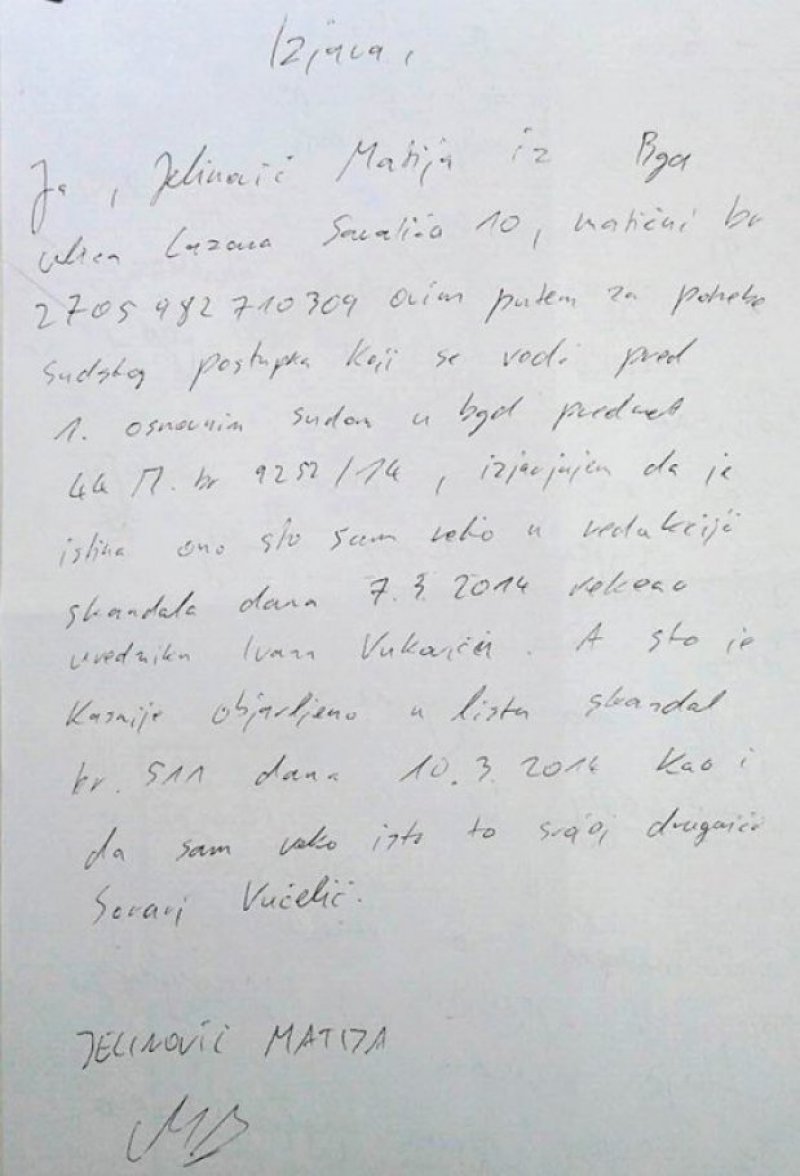 Izjava,
Ja, Jelinović Matija iz Bga
ulica Lazara Savatića 10, matični br
2705982710309 ovim putem za potrebe
sudskog postupka koji se vodi pred
1. osnovnim sudom u bgd predmet
44 П. br 9252/14, izjavjujem da je
istina ono što sam reko u redakciji
skandala dana 7.3.2014 rekao
uredniku Ivanu. A što je
kasnije objavljeno u listu skandal
br. 511 dana 10.3.2014 kao i
da sam reko isto to svojoj drugarici
Vučelić.
JELINOVIĆ MATIJA